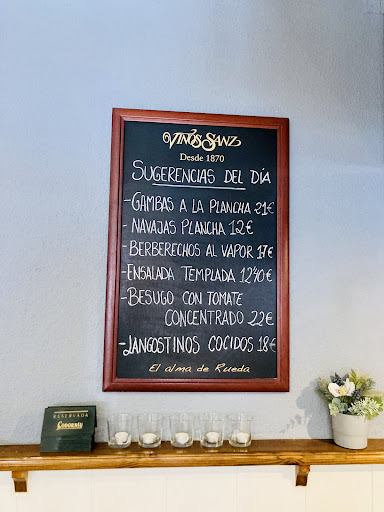 Vinos Sanz
Desde 1870
SUGERENCIAS DEL DÍA
- GAMBAS A LA PLANCHA 21€
- NAVAJAS PLANCHA 12€
- BERBERECHOS AL VAPOR 17€
- ENSALADA TEMPLADA 12'40€
- BESUGO CON TOMATE
CONCENTRADO 22€
- LANGOSTINOS COCIDOS 18€
El alma de Rueda
RESERVADA
Codorníu